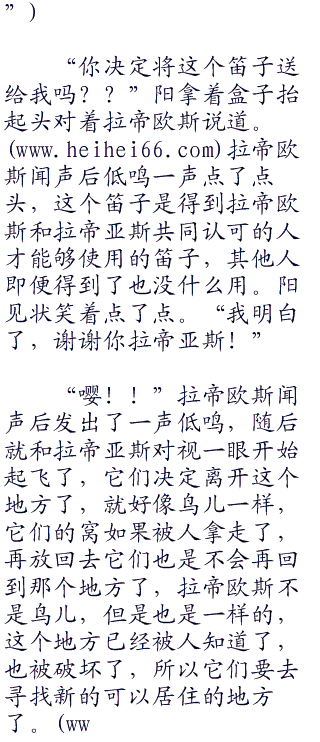 ”）
“你决定将这个笛子送
给我吗？？”阳拿着盒子抬
起头对着拉帝欧斯说道。
(www.heihei66.com)拉帝欧
斯闻声后低鸣一声点了点
头，这个笛子是得到拉帝欧
斯和拉帝亚斯共同认可的人
才能够使用的笛子，其他人
即便得到了也没什么用。阳
见状笑着点了点。“我明白
了，谢谢你拉帝亚斯！”
“嘤！！”拉帝欧斯闻
声后发出了一声低鸣，随后
就和拉帝亚斯对视一眼开始
起飞了，它们决定离开这个
地方了，就好像鸟儿一样，
它们的窝如果被人拿走了，
再放回去它们也是不会再回
到那个地方了，拉帝欧斯不
是鸟儿，但是也是一样的，
这个地方已经被人知道了，
也被破坏了，所以它们要去
寻找新的可以居住的地方
了。(ww